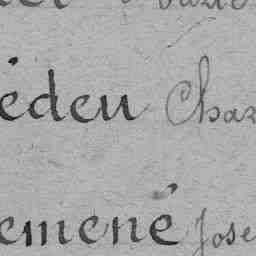 éden Char
emené Jose